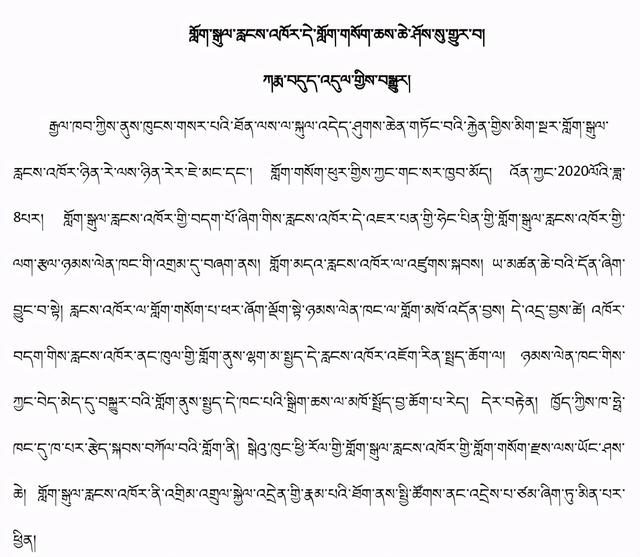 གློག་སྒུལ་རླངས་འཁོར་དེ་གློག་གསོག་ཆས་ཆེ་ཤོས་སུ་གྱུར་བ།
ཀརྨ་བདུད་འདུལ་གྱིས་བསྒྱུར།
རྒྱལ་ཁབ་ཀྱིས་ནུས་ཁུངས་གསར་པའི་ཐོན་ལས་ལ་སྐུལ་འདེད་ཤུགས་ཆེན་གཏོང་བའི་རྐྱེན་གྱིས་མིག་སྔར་གློག་སྒུལ་
རླངས་འཁོར་ཉིན་རེ་ལས་ཉིན་རེར་ཇེ་མང་དང་། གློག་གསོག་ཕུར་གྱིས་ཀྱང་གང་སར་ཁྱབ་མོད། འོན་ཀྱང་2020ལོའི་ཟླ་
8པར། གློག་སྒུལ་རླངས་འཁོར་གྱི་བདག་པོ་ཞིག་གིས་རླངས་འཁོར་དེ་འཇར་པན་གྱི་ཧེང་པིན་གྱི་གློག་སྒུལ་རླངས་འཁོར་གྱི་
ལག་རྩལ་ཉམས་ལེན་ཁང་གི་འགྲམ་དུ་བཞག་ནས། གློག་མདའ་རླངས་འཁོར་ལ་འཛུགས་སྐབས། ཡ་མཚན་ཆེ་བའི་དོན་ཞིག་
བྱུང་བ་སྟེ། རླངས་འཁོར་ལ་གློག་གསོག་པ་ཕར་ཞོག་ལྡོག་སྟེ་ཉམས་ལེན་ཁང་ལ་གློག་མཁོ་འདོན་བྱས། དེ་འདྲ་བྱས་ཚེ། འཁོར་
བདག་གིས་རླངས་འཁོར་ནང་ཁུལ་གྱི་གློག་ནུས་ལྷག་མ་སྤྱད་དེ་རླངས་འཁོར་འཇོག་རིན་སྤྲད་ཆོག་ལ། ཉམས་ལེན་ཁང་གིས་
ཀྱང་བེད་མེད་དུ་བསྐྱུར་བའི་གློག་ནུས་སྤྱད་དེ་ཁང་པའི་སྒྲིག་ཆས་ལ་མཁོ་སྤྲོད་བྱ་ཆོག་པ་རེད། དེར་བརྟེན། ཁྱོད་ཀྱིས་ཁ་ཧྥེ་
ཁང་དུ་ཁ་པར་རྩེད་སྐབས་བཀོལ་བའི་གློག་ནི། སྒེའུ་ཁུང་ཕྱི་རོལ་གྱི་གློག་སྒུལ་རླངས་འཁོར་གྱི་གློག་གསོག་རྫས་ལས་ཡོང་ཤས་
ཆེ། གློག་སྒུལ་རླངས་འཁོར་ནི་འགྲིམ་འགྲུལ་སྐྱེལ་འདྲེན་གྱི་རྣམ་པའི་ཐོག་ནས་སྤྱི་ཚོགས་ནང་འདྲེས་པ་ཙམ་ཞིག་ཏུ་མིན་པར་
ཕྱིན།